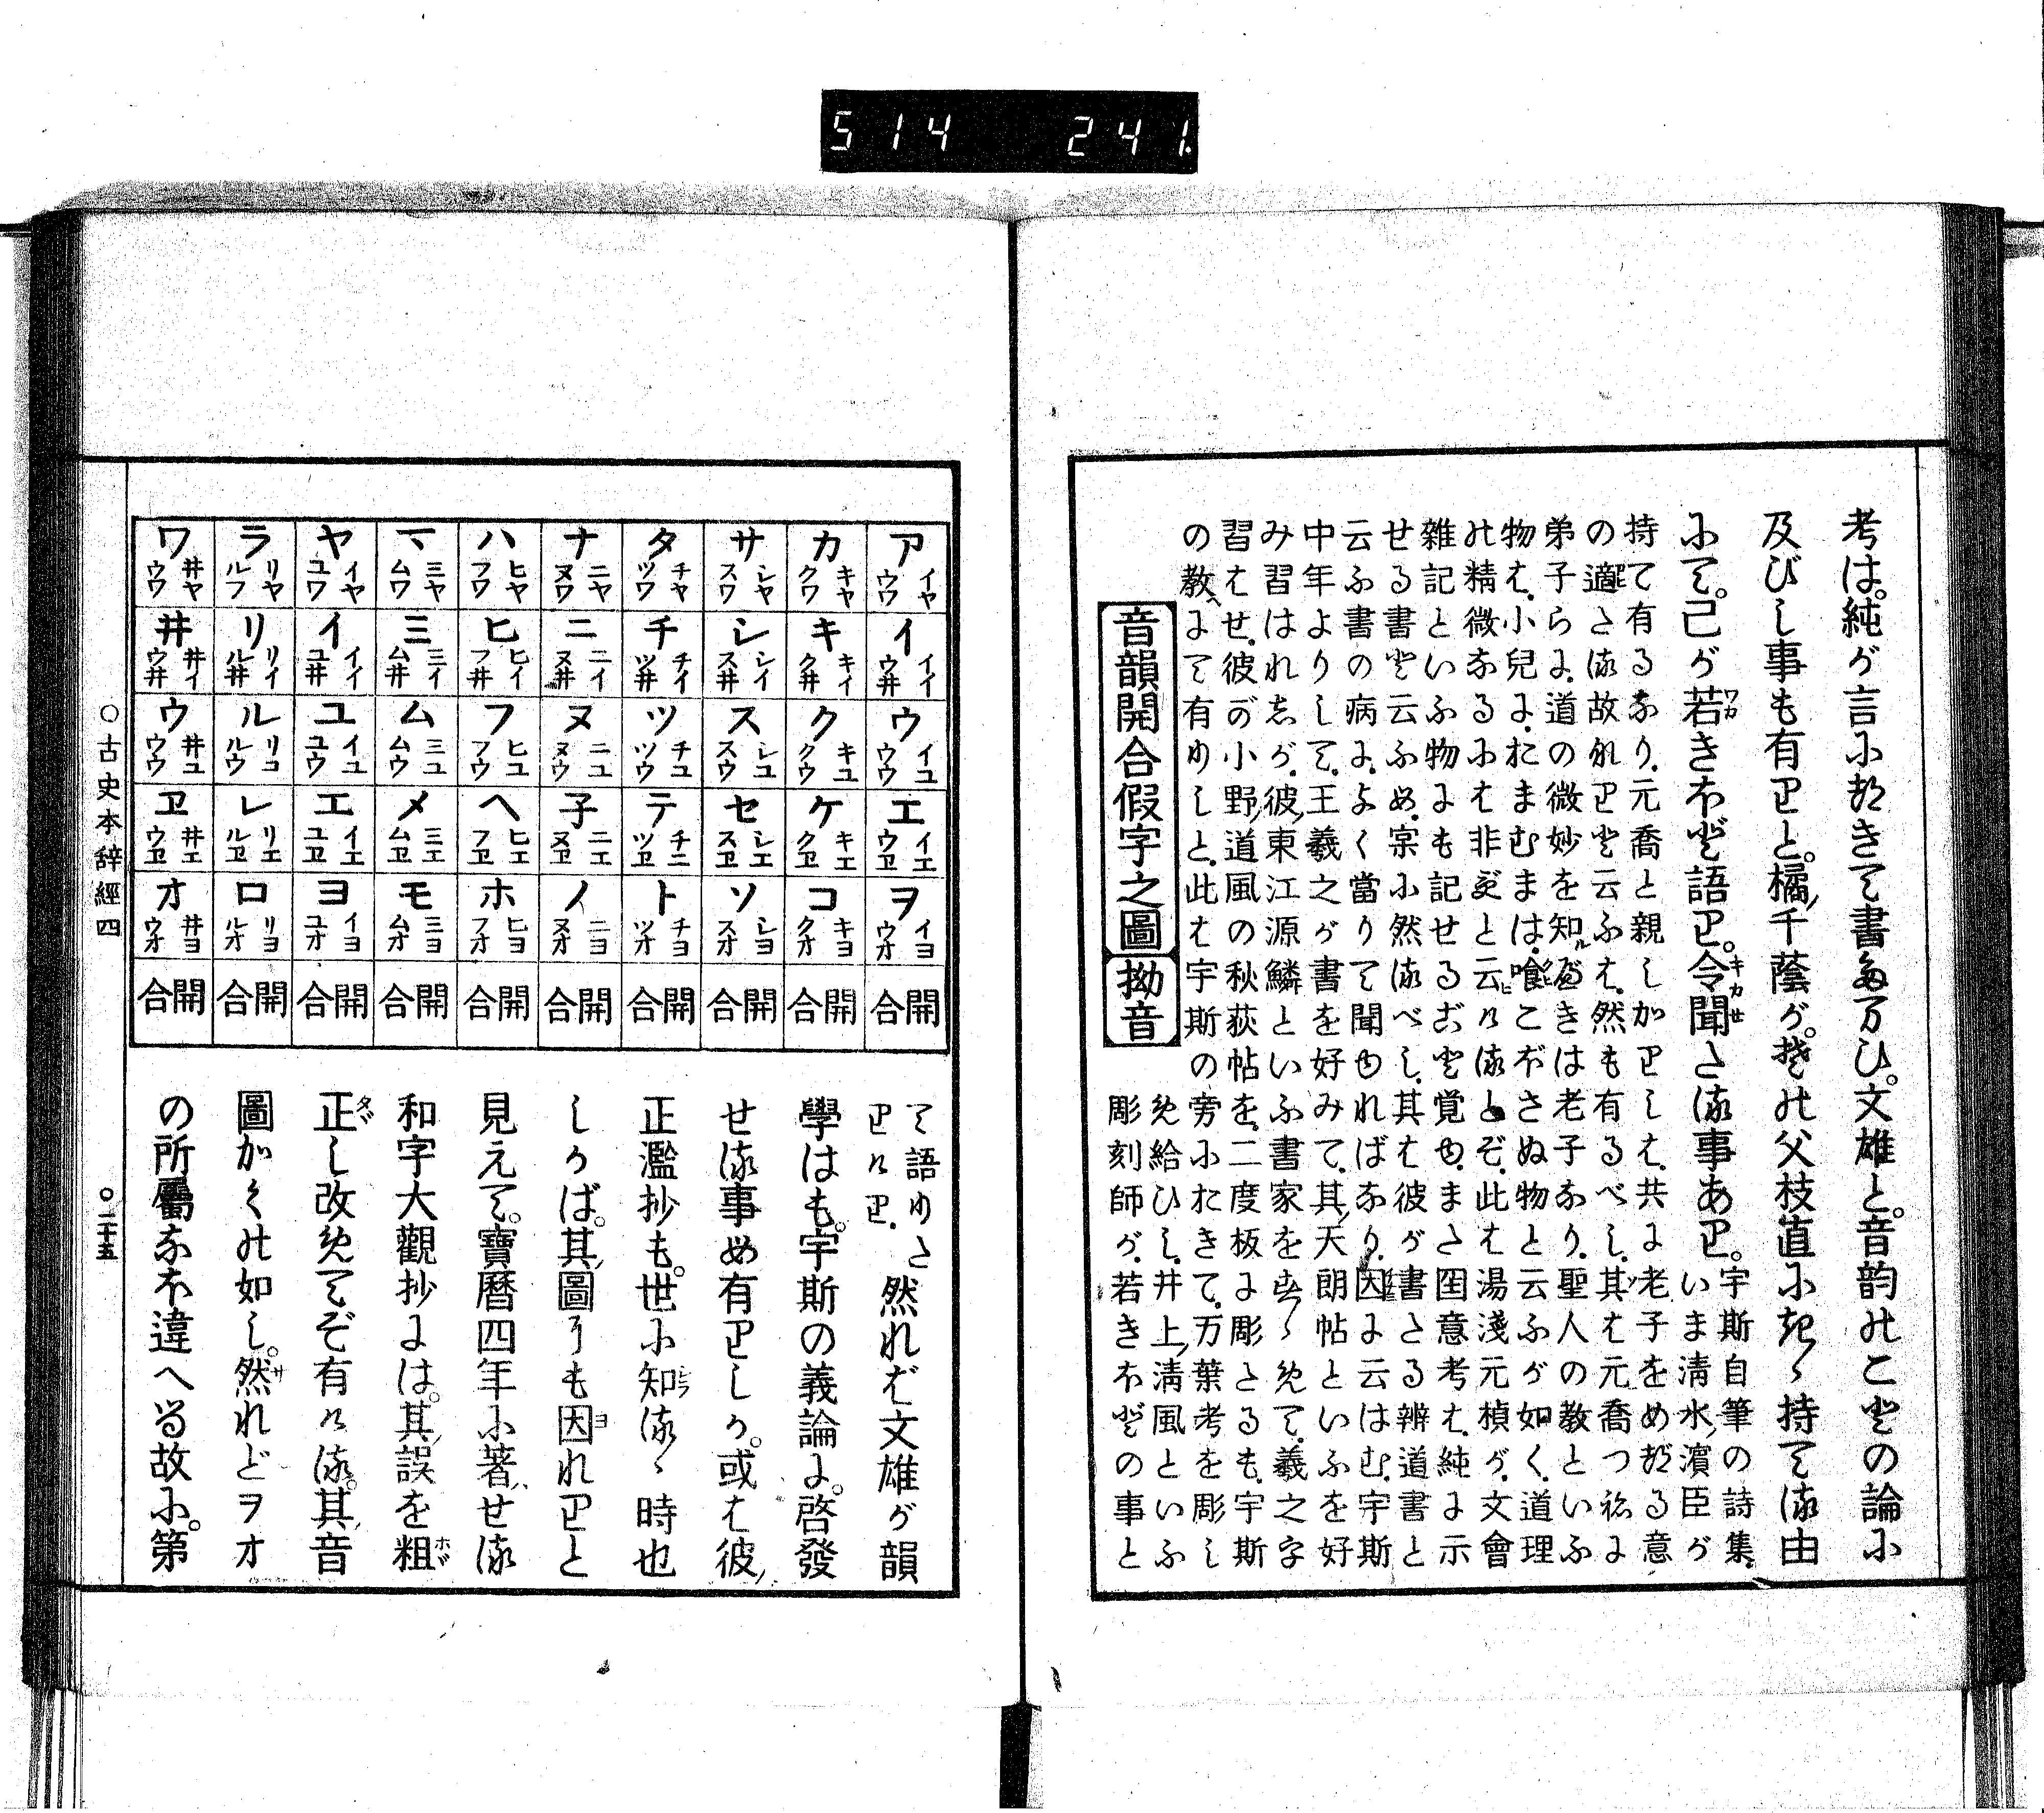 考は。純が言におきて書給ひ。文雄と。音韵のことの論に
及びし事も有りと。橘千蔭が。その父枝直にきゝ持てる由
にて。己が若きほど語り。令聞たる事あり。
宇斯自筆の詩集。
いま清水濱臣が
持て有るなり。元喬と親しかりしは。共に老子をめづる意
の適たる故なりと云ふは。然も有るべし。其は元喬つねに
弟子らに。道の微妙を知べきは老子なり。聖人の教といふ
物は。小兒にたまむまは。喰こぼさぬ物と云ふが如く。道理
の精微なるには非ずと云へるとぞ。此は湯淺元楨が。文會
雜記といふ物にも記せると覚ゆ。また国意考は。純に示
せる書と云ふめ。然るべし。其は彼が書たる辨道書と
云ふ書の病に。よく當りて聞ゆればなり。因に云はむ。宇斯
中年よりして。王羲之が書を好みて。其天朗帖といふを好
み習はれしが。彼東江源鱗といふ書家をすゝめて。羲之字
習はせ。彼の小野道風の秋萩帖を。二度板に彫たるも。宇斯
の教へにて有りしと。此は宇斯の旁におきて。万葉考を彫し
め給ひし。井上清風といふ
彫刻師が。若きほどの事と
音韻開合假字之圖 拗音
ア イヤ ウワ イ イイ ウ井 ウ イユ ウウ エ イエ ウヱ ヲ イヨ ウオ 開合
カ キヤ クワ キ キイ ク井 ク キユ クウ ケ キエ クヱ コ キヨ クオ 開合
サ シヤ スワ シ シイ ス井 ス シユ スウ セ シエ スヱ ソ シヨ スオ 開合
タ チヤ ツワ チ チイ ツ井 ツ チユ ツウ テ チニ ツヱ ト チヨ ツオ 開合
ナ ニヤ ヌワ ニ ニイ ヌ井 ヌ ニユ ヌウ 子 ニエ ヌヱ ノ ニヨ ヌオ 開合
ハ ヒヤ フワ ヒ ヒイ フ井 フ ヒユ フウ ヘ ヒエ フヱ ホ ヒヨ フオ 開合
マ ミヤ ムワ ミ ミイ ム井 ム ミユ ムウ メ ミエ ムヱ モ ミヨ ムオ 開合
ヤ イヤ ユワ イ イイ ユ井 ユ イユ ユウ エ イエ ユヱ ヨ イヨ ユオ 開合
ラ リヤ ルフ リ リイ ル井 ル リコ ルウ レ リエ ルヱ ロ リヨ ルオ 開合
ワ 井ヤ ウワ 井 井イ ウ井 ウ 井ユ ウウ ヱ 井エ ウヱ オ 井ヨ ウオ 開合
て語りた
りけり。
然れば文雄が韻
學はも。宇斯の義論に。啓發
せる事も有りしか。或は彼
正濫抄も。世に知るゝ時也
しかば。其圖にも因れりと
見えて。寶暦四年に著せる
和字大觀抄には。其誤を粗
正し改めてぞ有ける。其音
圖かくの如し。然れどヲオ
の所屬なほ違へる故に。第
○古史本辭經四 ○二十五
514 241.